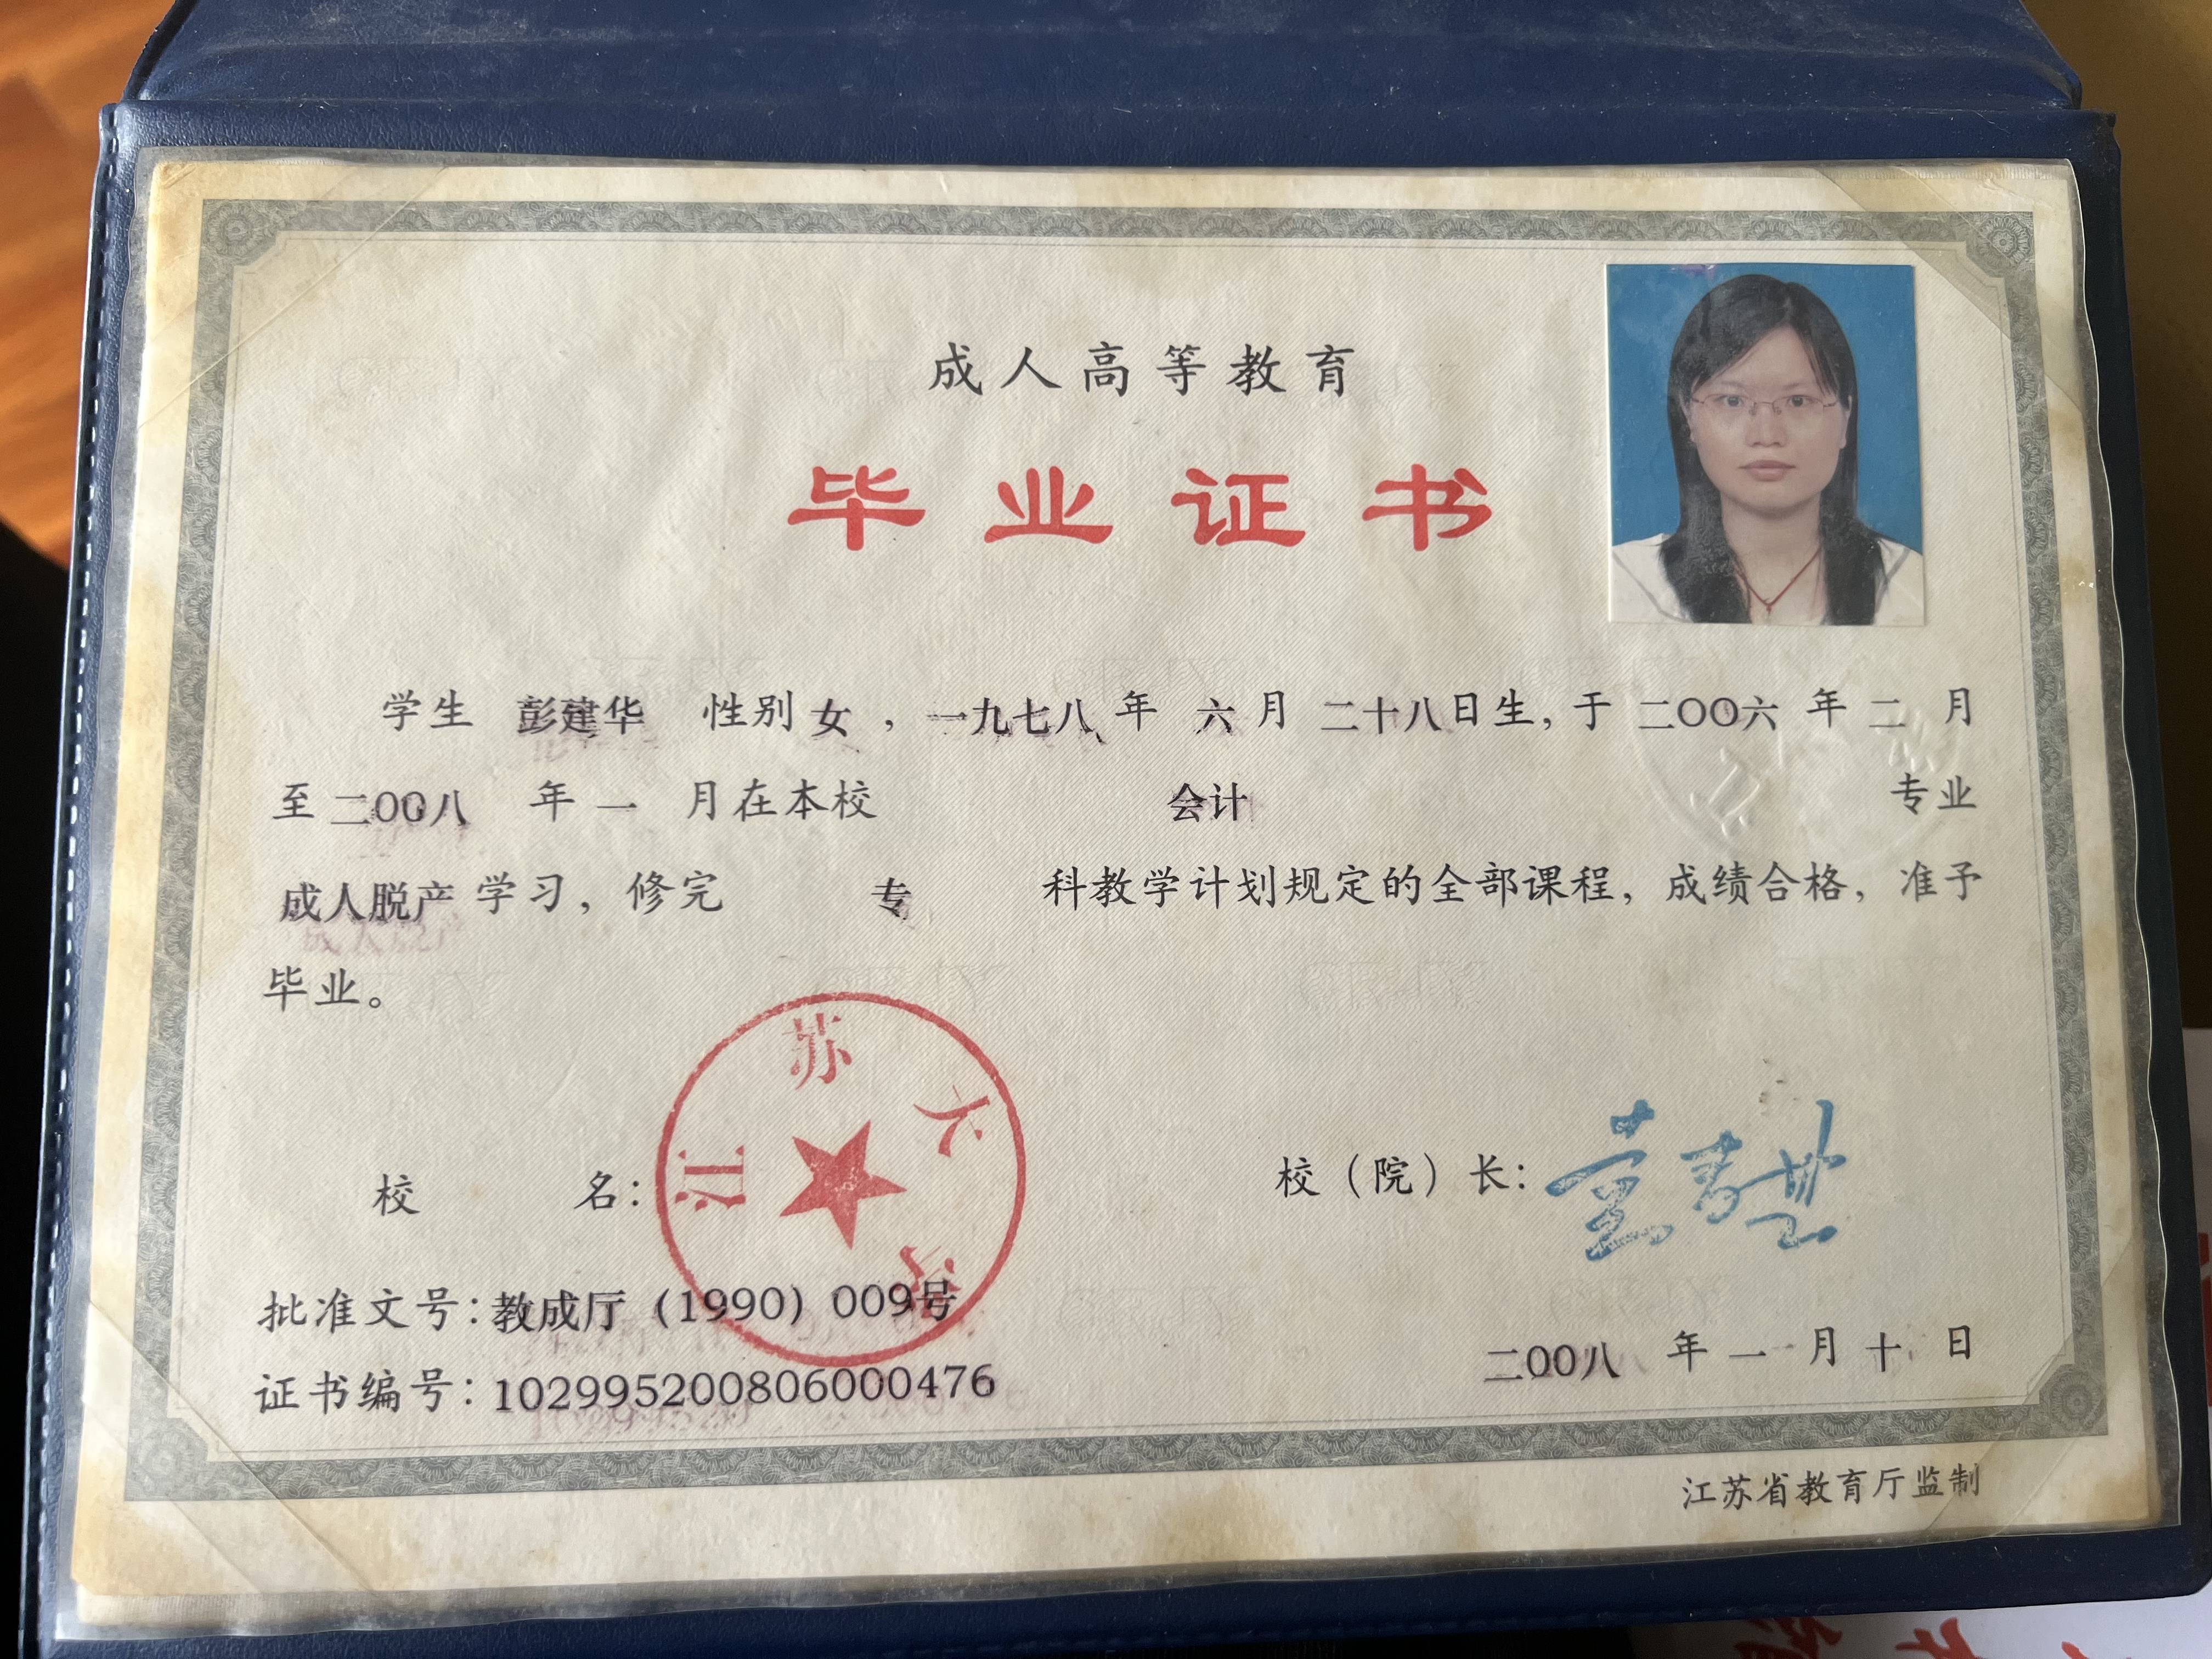 成人高等教育
毕业证书
学生 彭建华 性别 女 ，一九七八 年 六 月 二十八日生，于 二〇〇六 年 二 月
至 二〇〇八 年 一 月在本校 会计 专业
成人脱产 学习，修完 专 科教学计划规定的全部课程，成绩合格，准予
毕业。
江苏大学
校 名：
校（院）长：
批准文号：教成厅（1990）009号
证书编号：102995200806000476
二〇〇八 年 一 月 十 日
江苏省教育厅监制